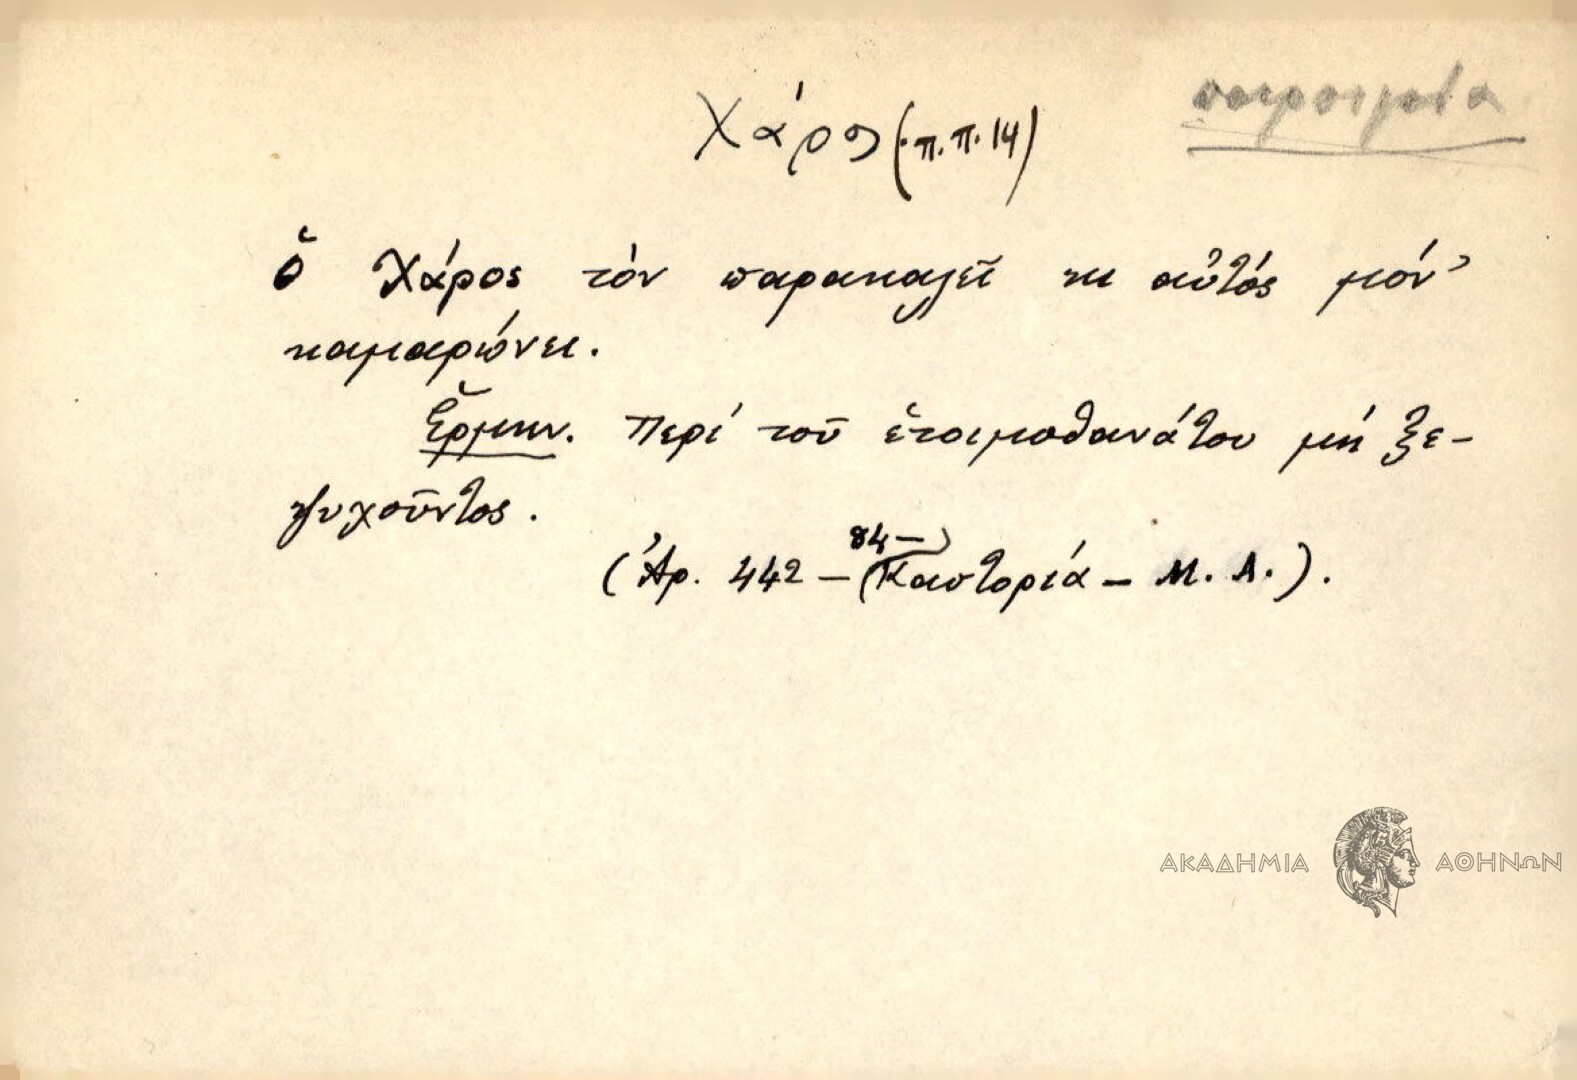 παροιμία
Χάρος (π.π. 14)
Ὁ Χάρος τὸν παρακαλεῖ κι αὐτός μόν'
καμαρώνει.
Ἑρμην. Περί τοῦ ἑτοιμοθανάτου μή ξε-
ψυχοῦντος.
84 –
(Ἀρ. 442 – (Καστορία – Μ. Δ.).
ΑΚΑΔΗΜΙΑ ΑΘΗΝΩΝ